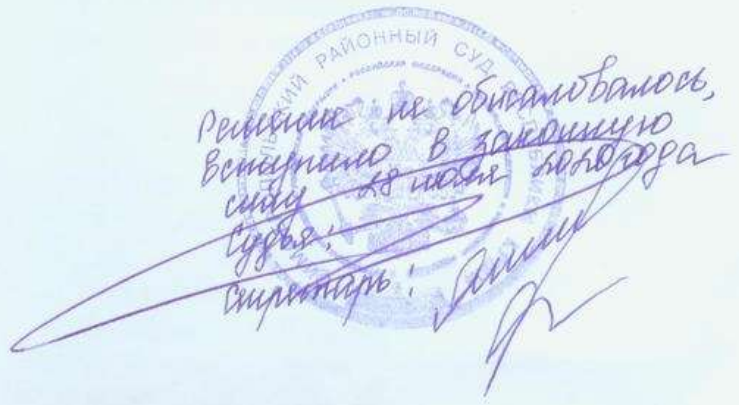 РАЙОННЫЙ СУД
РОССИЙСКАЯ ФЕДЕРАЦИЯ
Решение не обжаловалось,
вступило в законную
силу 28 июля 2020 года
Судья:
Секретарь: